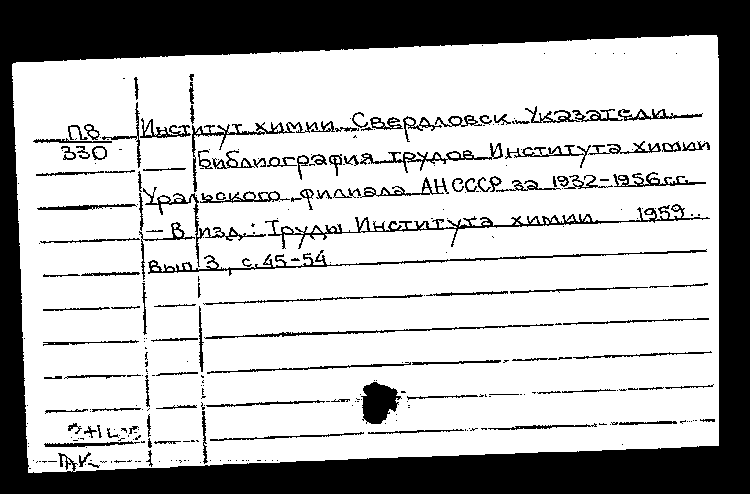 П8 Институт химии. Свердловск. Указатели.
330 Библиография трудов Института химии
Уральского филиала АН СССР за 1932-1956гг.
— В изд.: Труды Института химии. 1959.
Вып. 3, с. 45-54